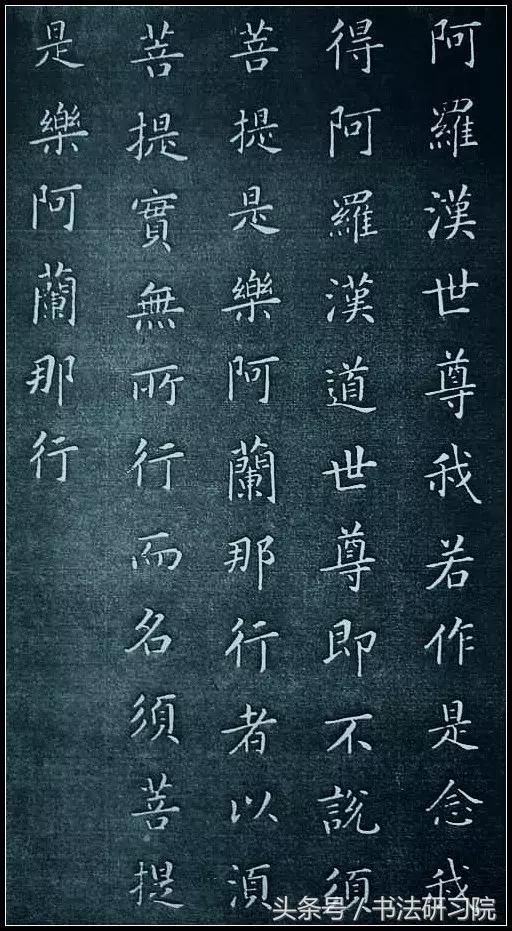 阿羅漢世尊我若作是念我
得阿羅漢道世尊即不說須
菩提是樂阿蘭那行者以須
菩提實無所行而名須菩提
是樂阿蘭那行
头条号/书法研习院